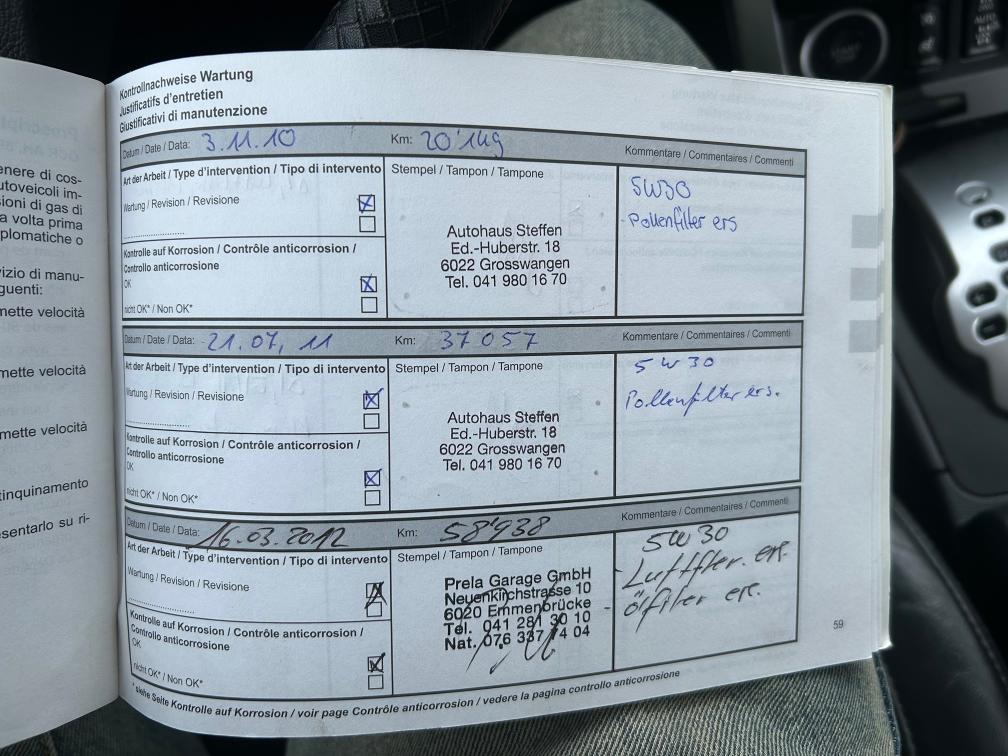 Kontrollnachweise Wartung
Justificatifs d'entretien
Giustificativi di manutenzione
Datum / Date / Data: 3.11.10 Km: 20'149 Kommentare / Commentaires / Commenti
Art der Arbeit / Type d'intervention / Tipo di intervento
Wartung / Revision / Revisione
Kontrolle auf Korrosion / Contrôle anticorrosion /
Controllo anticorrosione
OK
nicht OK* / Non OK*
Stempel / Tampon / Tampone
Autohaus Steffen
Ed.-Huberstr. 18
6022 Grosswangen
Tel. 041 980 16 70
5W30
- Pollenfilter ers
Datum / Date / Data: 21.07.11 Km: 37057 Kommentare / Commentaires / Commenti
Art der Arbeit / Type d'intervention / Tipo di intervento
Wartung / Revision / Revisione
Kontrolle auf Korrosion / Contrôle anticorrosion /
Controllo anticorrosione
OK
nicht OK* / Non OK*
Stempel / Tampon / Tampone
Autohaus Steffen
Ed.-Huberstr. 18
6022 Grosswangen
Tel. 041 980 16 70
5W30
Pollenfilter ers.
Datum / Date / Data: 16.03.2012 Km: 58'938 Kommentare / Commentaires / Commenti
Art der Arbeit / Type d'intervention / Tipo di intervento
Wartung / Revision / Revisione
Kontrolle auf Korrosion / Contrôle anticorrosion /
Controllo anticorrosione
OK
nicht OK* / Non OK*
Stempel / Tampon / Tampone
Prela Garage GmbH
Neuenkirchstrasse 10
6020 Emmenbrücke
Tel. 041 281 30 10
Nat. 076 337 74 04
5W30
- Luftfilter. ers.
- Ölfilter ers.
* siehe Seite Kontrolle auf Korrosion / voir page Contrôle anticorrosion / vedere la pagina controllo anticorrosione
59
enere di cos-
utoveicoli im-
sioni di gas di
a volta prima
plomatiche o
vizio di manu-
guenti:
mette velocità
mette velocità
mette velocità
tinquinamento
esentarlo su ri-
START
AUTO